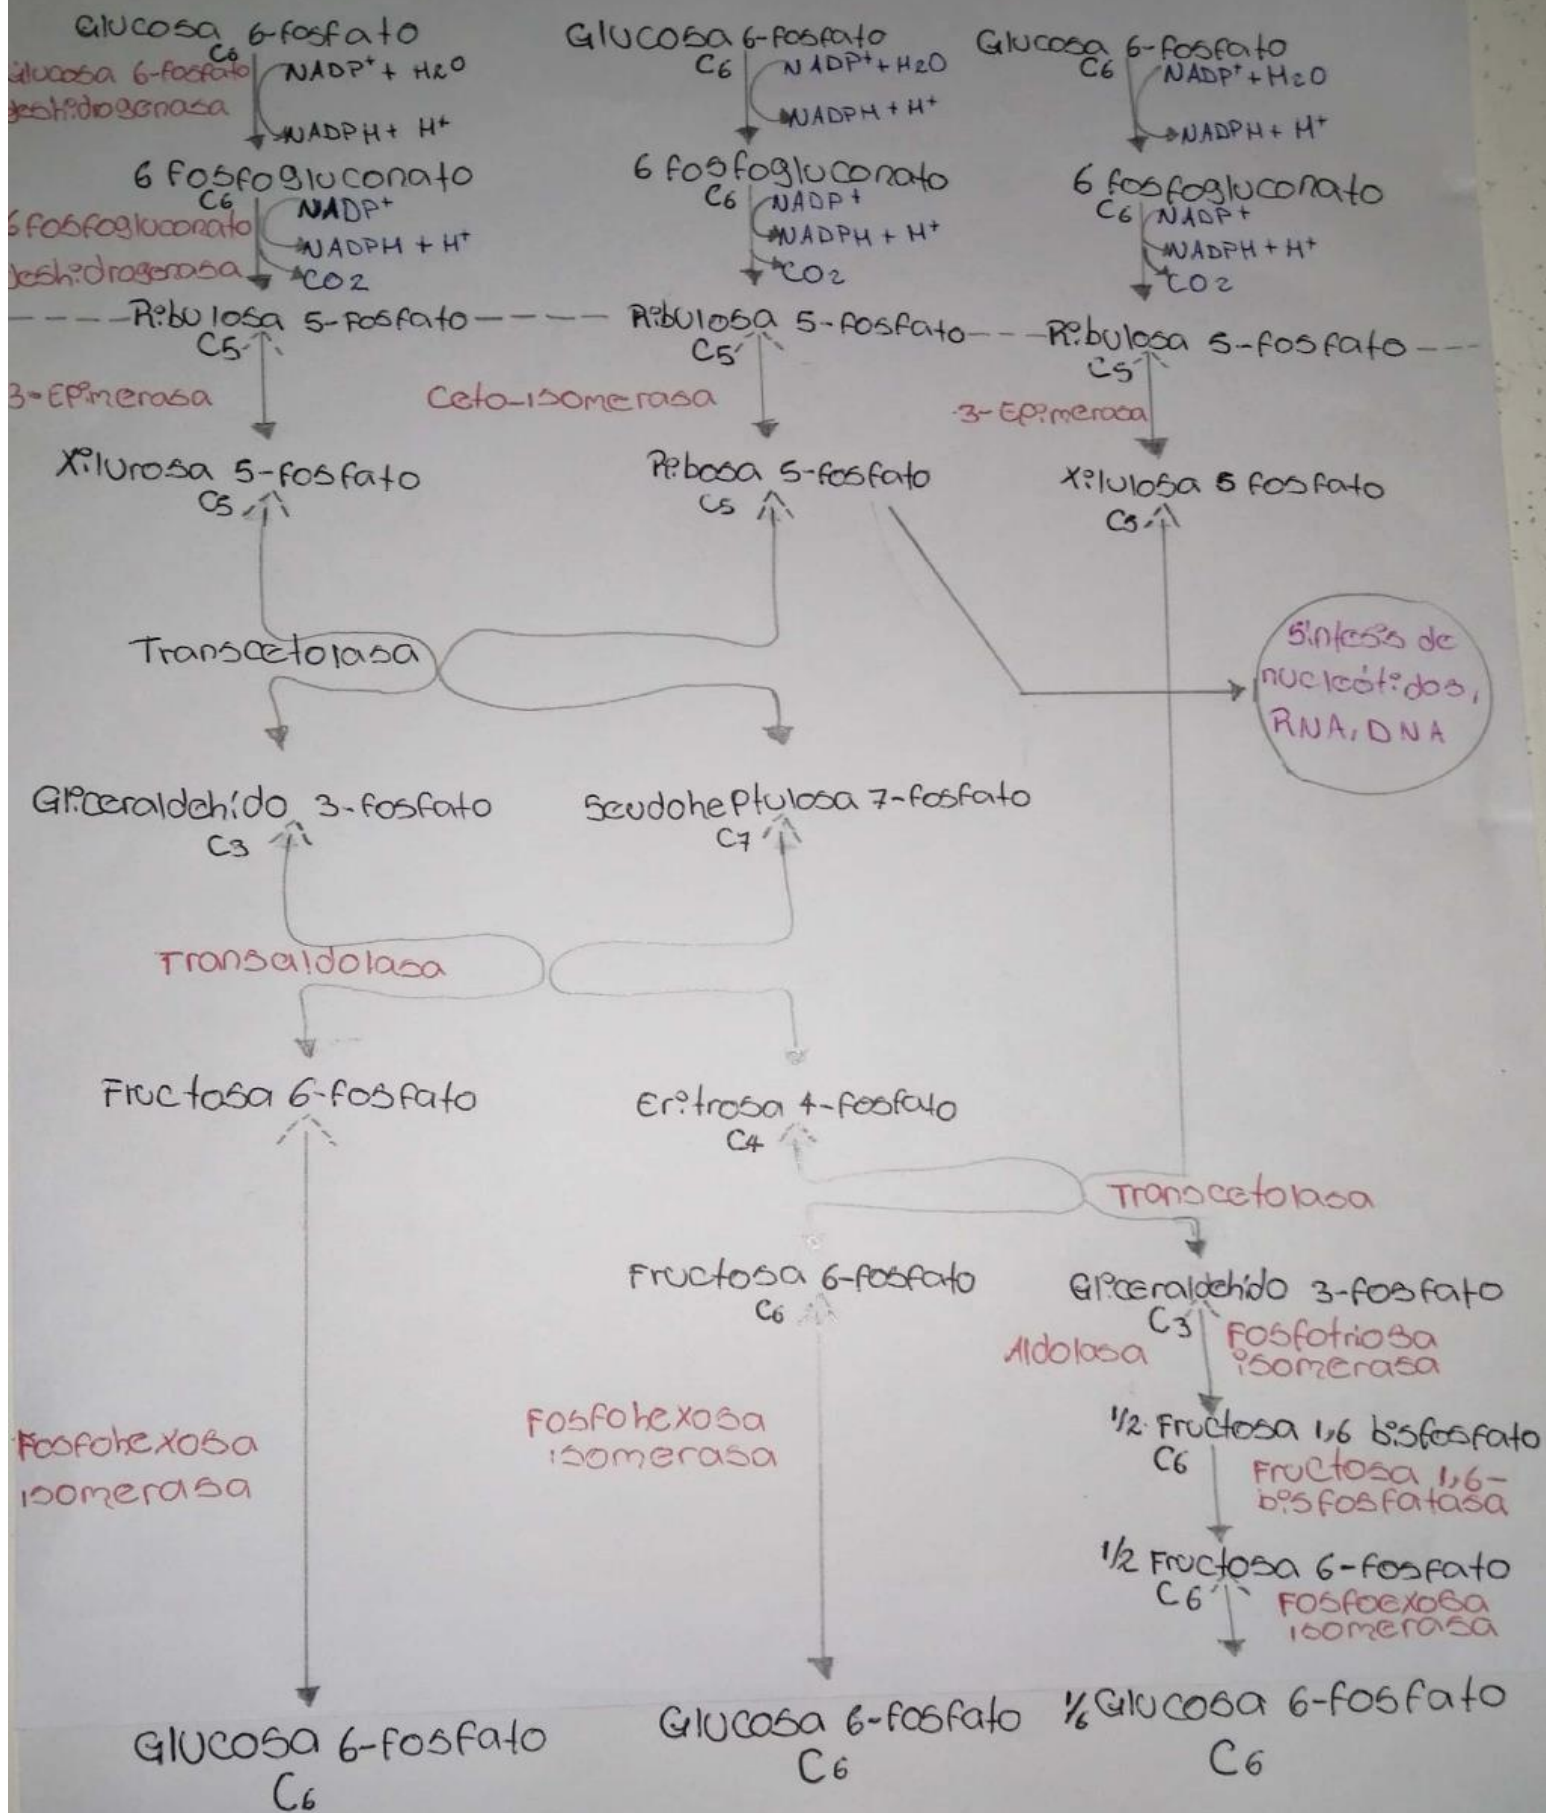 Glucosa 6-fosfato
C6
Glucosa 6-fosfato
deshidrogenasa
NADP+ + H2O
NADPH + H+
6 fosfogluconato
C6
6 fosfogluconato
deshidrogenasa
NADP+
NADPH + H+
CO2
Ribulosa 5-fosfato
C5
3-Epimerasa
Xilurosa 5-fosfato
C5
Glucosa 6-fosfato
C6
NADP+ + H2O
NADPH + H+
6 fosfogluconato
C6
NADP+
NADPH + H+
CO2
Ribulosa 5-fosfato
C5
Ceto-isomerasa
Ribosa 5-fosfato
C5
Glucosa 6-fosfato
C6
NADP+ + H2O
NADPH + H+
6 fosfogluconato
C6
NADP+
NADPH + H+
CO2
Ribulosa 5-fosfato
C5
3-Epimerasa
Xilulosa 5 fosfato
C5
Transcetolasa
Síntesis de
nucleótidos,
RNA, DNA
Gliceraldehído 3-fosfato
C3
Seudoheptulosa 7-fosfato
C7
Transaldolasa
Fructosa 6-fosfato
Eritrosa 4-fosfato
C4
Transcetolasa
Fructosa 6-fosfato
C6
Gliceraldehido 3-fosfato
C3
Aldolasa
Fosfotriosa
isomerasa
1/2 Fructosa 1,6 bisfosfato
C6
Fructosa 1,6-
bisfosfatasa
1/2 Fructosa 6-fosfato
C6
Fosfoexosa
isomerasa
Fosfohexosa
isomerasa
Fosfohexosa
isomerasa
Glucosa 6-fosfato
C6
Glucosa 6-fosfato
C6
1/6 Glucosa 6-fosfato
C6